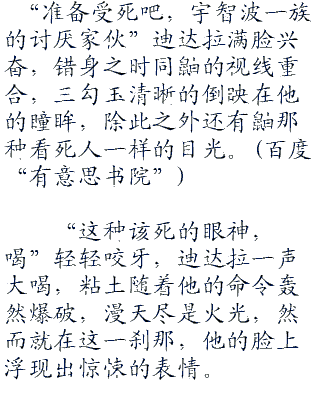 “准备受死吧，宇智波一族
的讨厌家伙”迪达拉满脸兴
奋，错身之时同鼬的视线重
合，三勾玉清晰的倒映在他
的瞳眸，除此之外还有鼬那
种看死人一样的目光。(百度
“有意思书院”)
“这种该死的眼神，
喝”轻轻咬牙，迪达拉一声
大喝，粘土随着他的命令轰
然爆破，漫天尽是火光，然
而就在这一刹那，他的脸上
浮现出惊悚的表情。